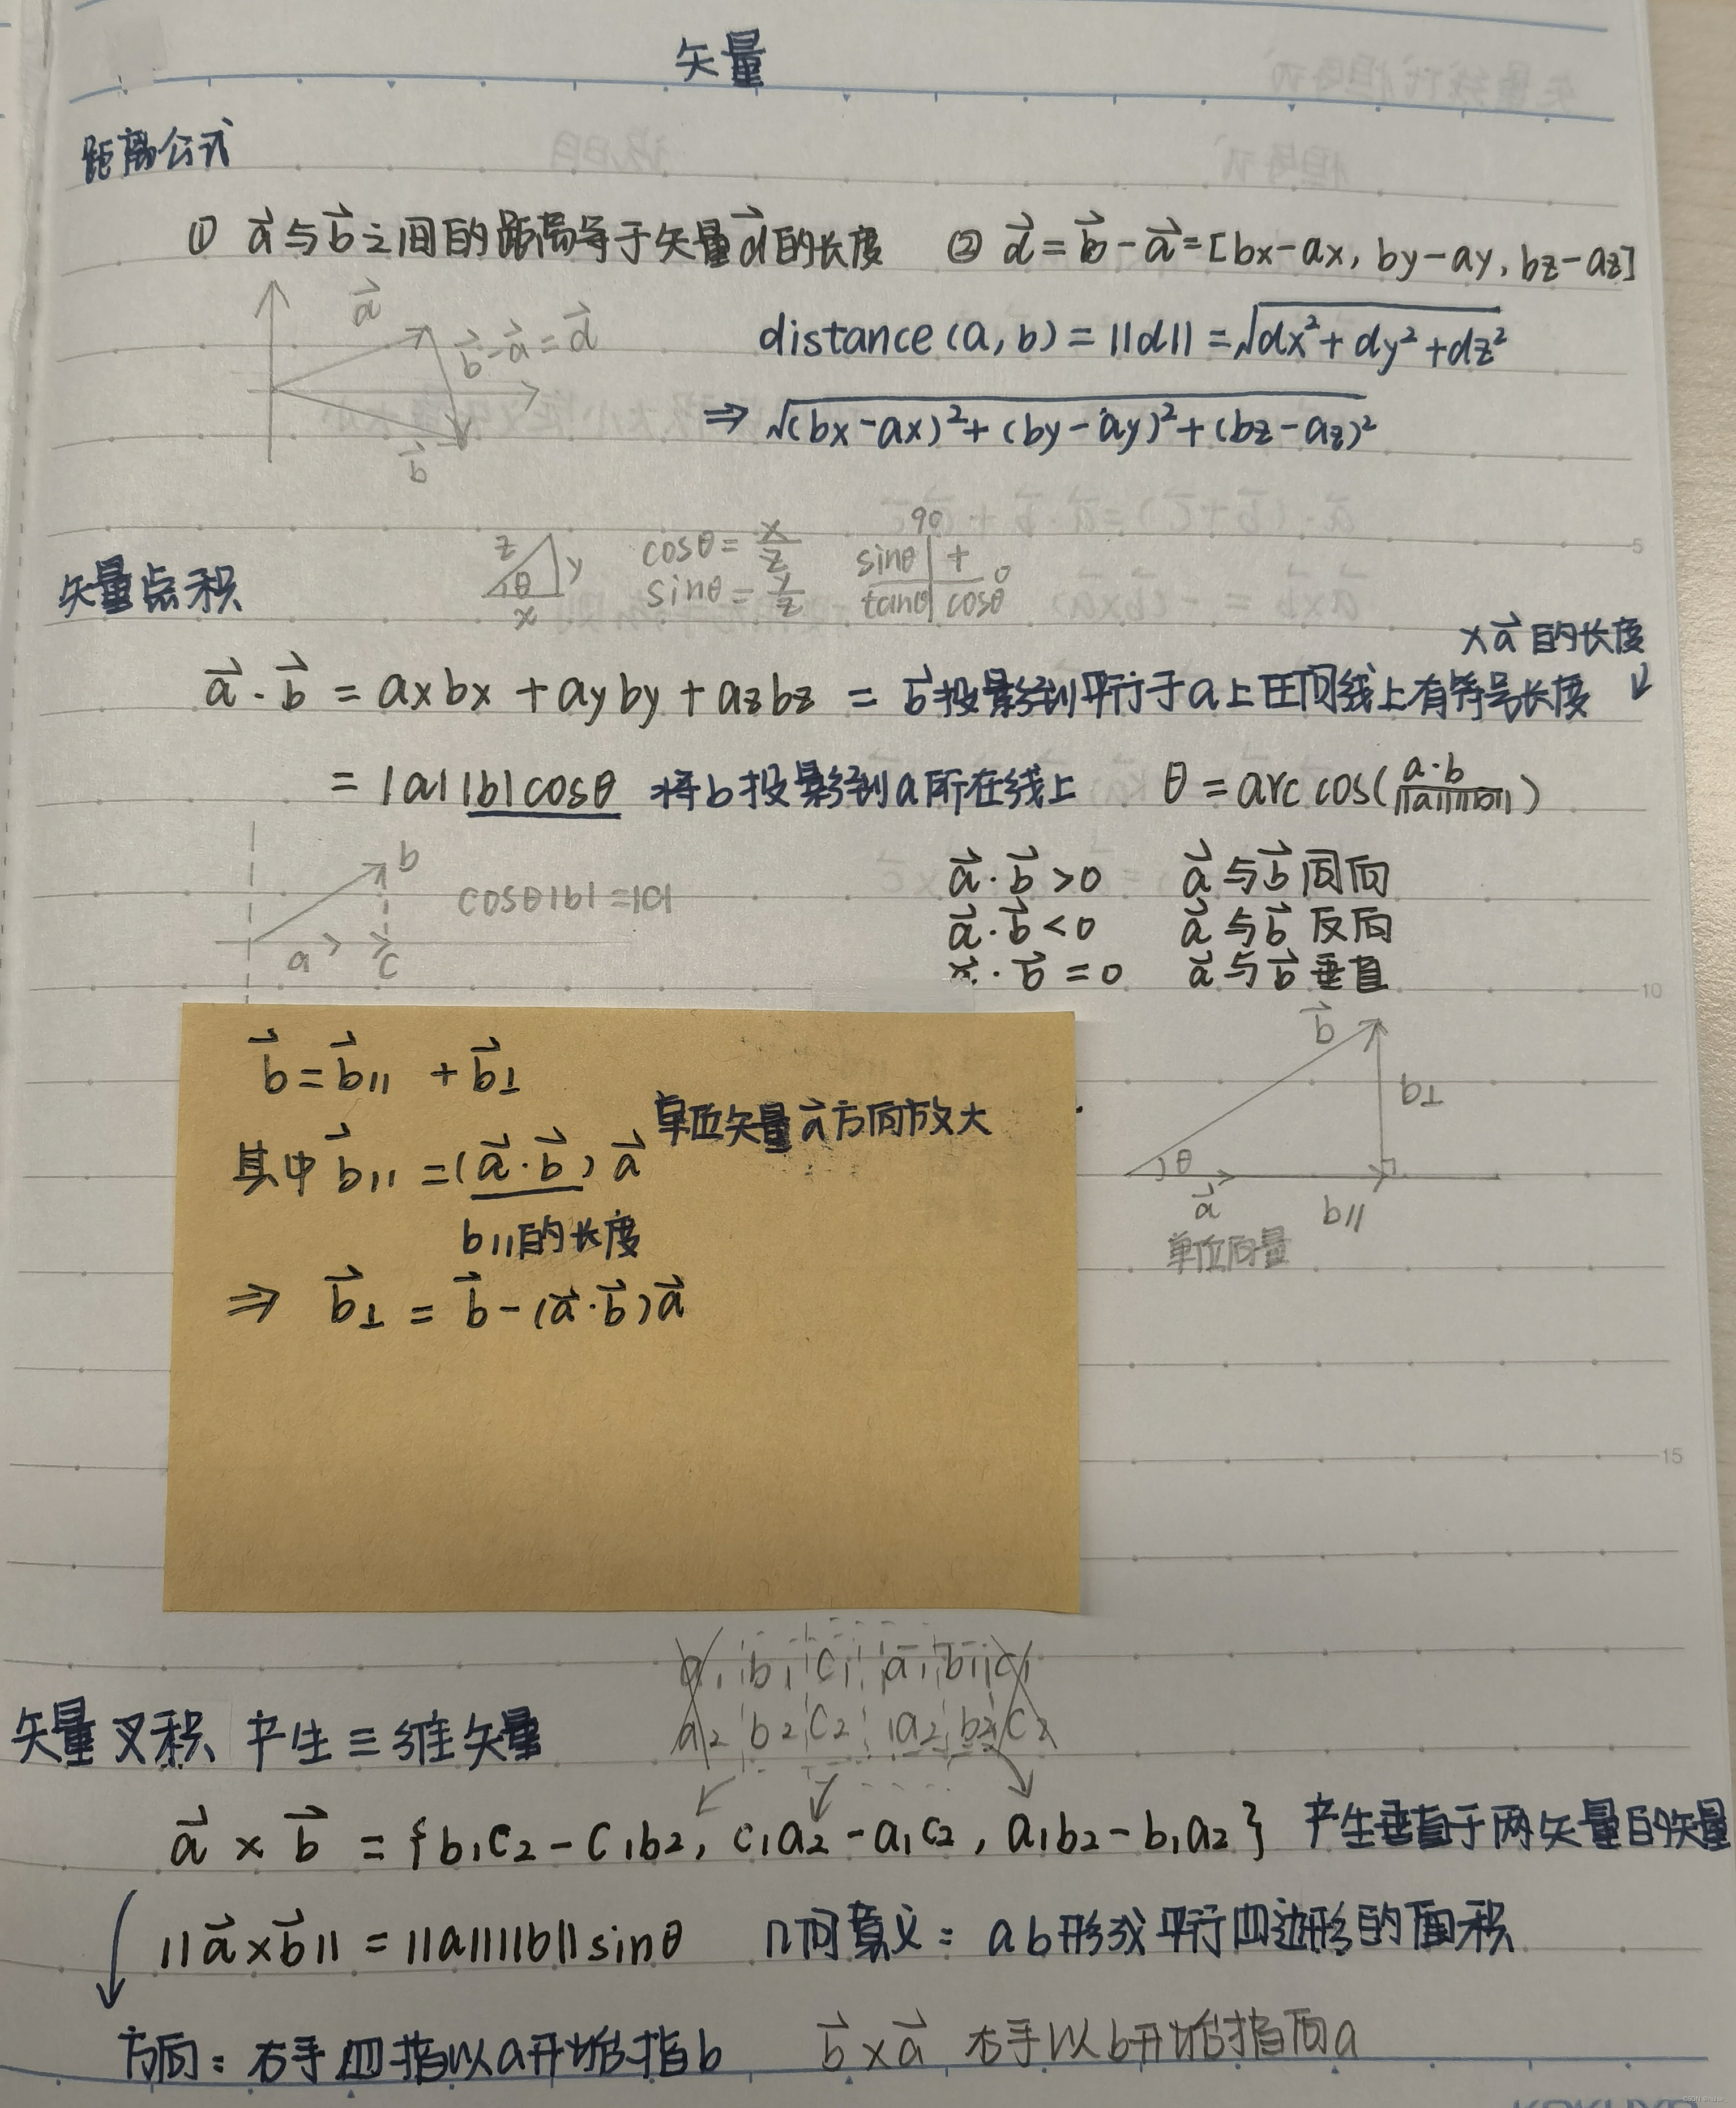 矢量
距离公式
① a⃗与b⃗之间的距离等于矢量d⃗的长度 ② d⃗=b⃗-a⃗=[bx-ax, by-ay, bz-az]
a⃗
b⃗-a⃗=d⃗
b⃗
distance(a,b)=||d||=√(dx²+dy²+dz²)
⇒ √((bx-ax)²+(by-ay)²+(bz-az)²)
矢量点积
z θ y x
cosθ=x/z
sinθ=y/z
90
sinθ + 0
tanθ cosθ
xa⃗的长度
a⃗·b⃗ = axbx + ayby + azbz = b⃗投影到平行于a上任何线上有符号长度
= |a||b|cosθ 将b投影到a所在线上 θ=arc cos(a·b/||a||||b||)
b
a c
cosθ|b|=|c|
a⃗·b⃗>0 a⃗与b⃗同向
a⃗·b⃗<0 a⃗与b⃗反向
·b⃗=0 a⃗与b⃗垂直
b⃗=b⃗∥ +b⃗⊥
单位矢量a⃗方向放大
其中b⃗∥=(a⃗·b⃗)a⃗
b∥的长度
⇒ b⃗⊥ = b⃗-(a⃗·b⃗)a⃗
b⃗
b⊥
θ
a⃗ b∥
单位向量
a₁ b₁ c₁ a₁ b₁ c₁
a₂ b₂ c₂ a₂ b₂ c₂
矢量叉积 产生三维矢量
a⃗ × b⃗ = {b₁c₂-c₁b₂, c₁a₂-a₁c₂, a₁b₂-b₁a₂} 产生垂直于两矢量的矢量
||a⃗×b⃗|| = ||a||||b||sinθ 几何意义: ab形成平行四边形的面积
方向: 右手四指以a开始指b b⃗×a⃗ 右手以b开始指向a
5
10
15